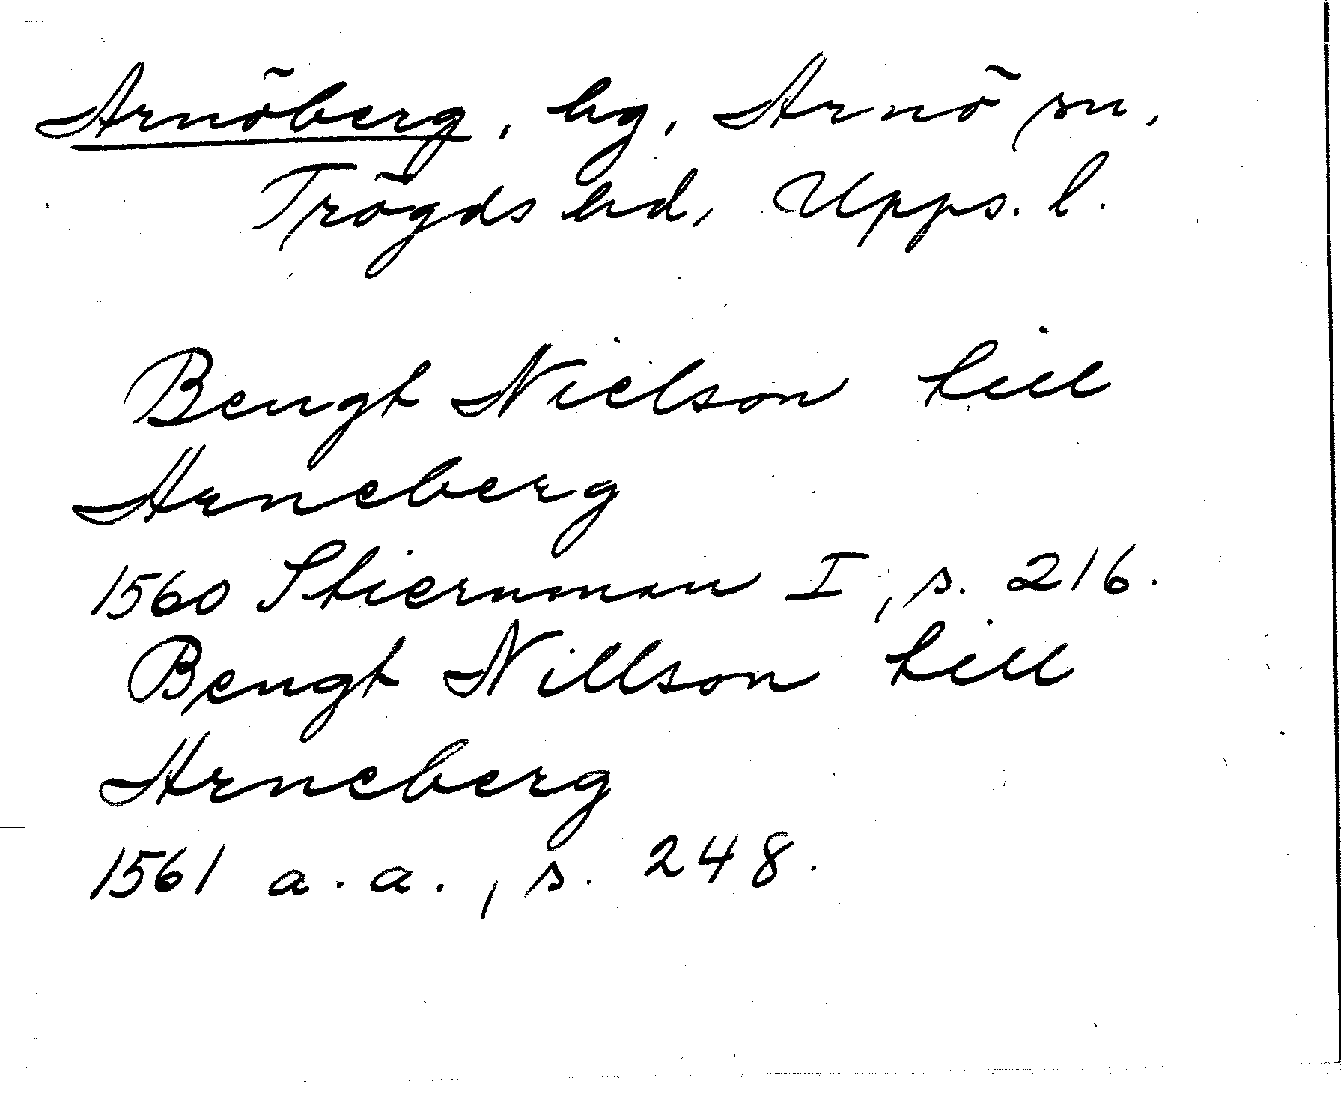 Arnöberg, hg, Arnö sn,
Trögds hd, Upps. l.
Bengt Nielson till
Arneberg
1560 Stiernman I, s. 216.
Bengt Nillson till
Arneberg
1561 a. a., s. 248.